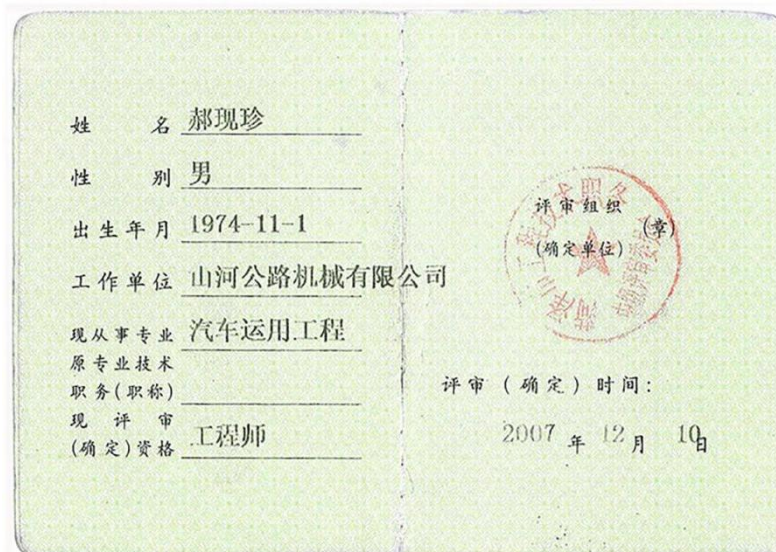 姓 名 郝现珍
性 别 男
出生年月 1974-11-1
工作单位 山河公路机械有限公司
现从事专业 汽车运用工程
原专业技术
职务(职称)
现评审
(确定)资格 工程师
评审组织
(章)
(确定单位)
菏泽市工程技术职务
中级评审委员会
评审(确定)时间:
2007 年 12 月 10日